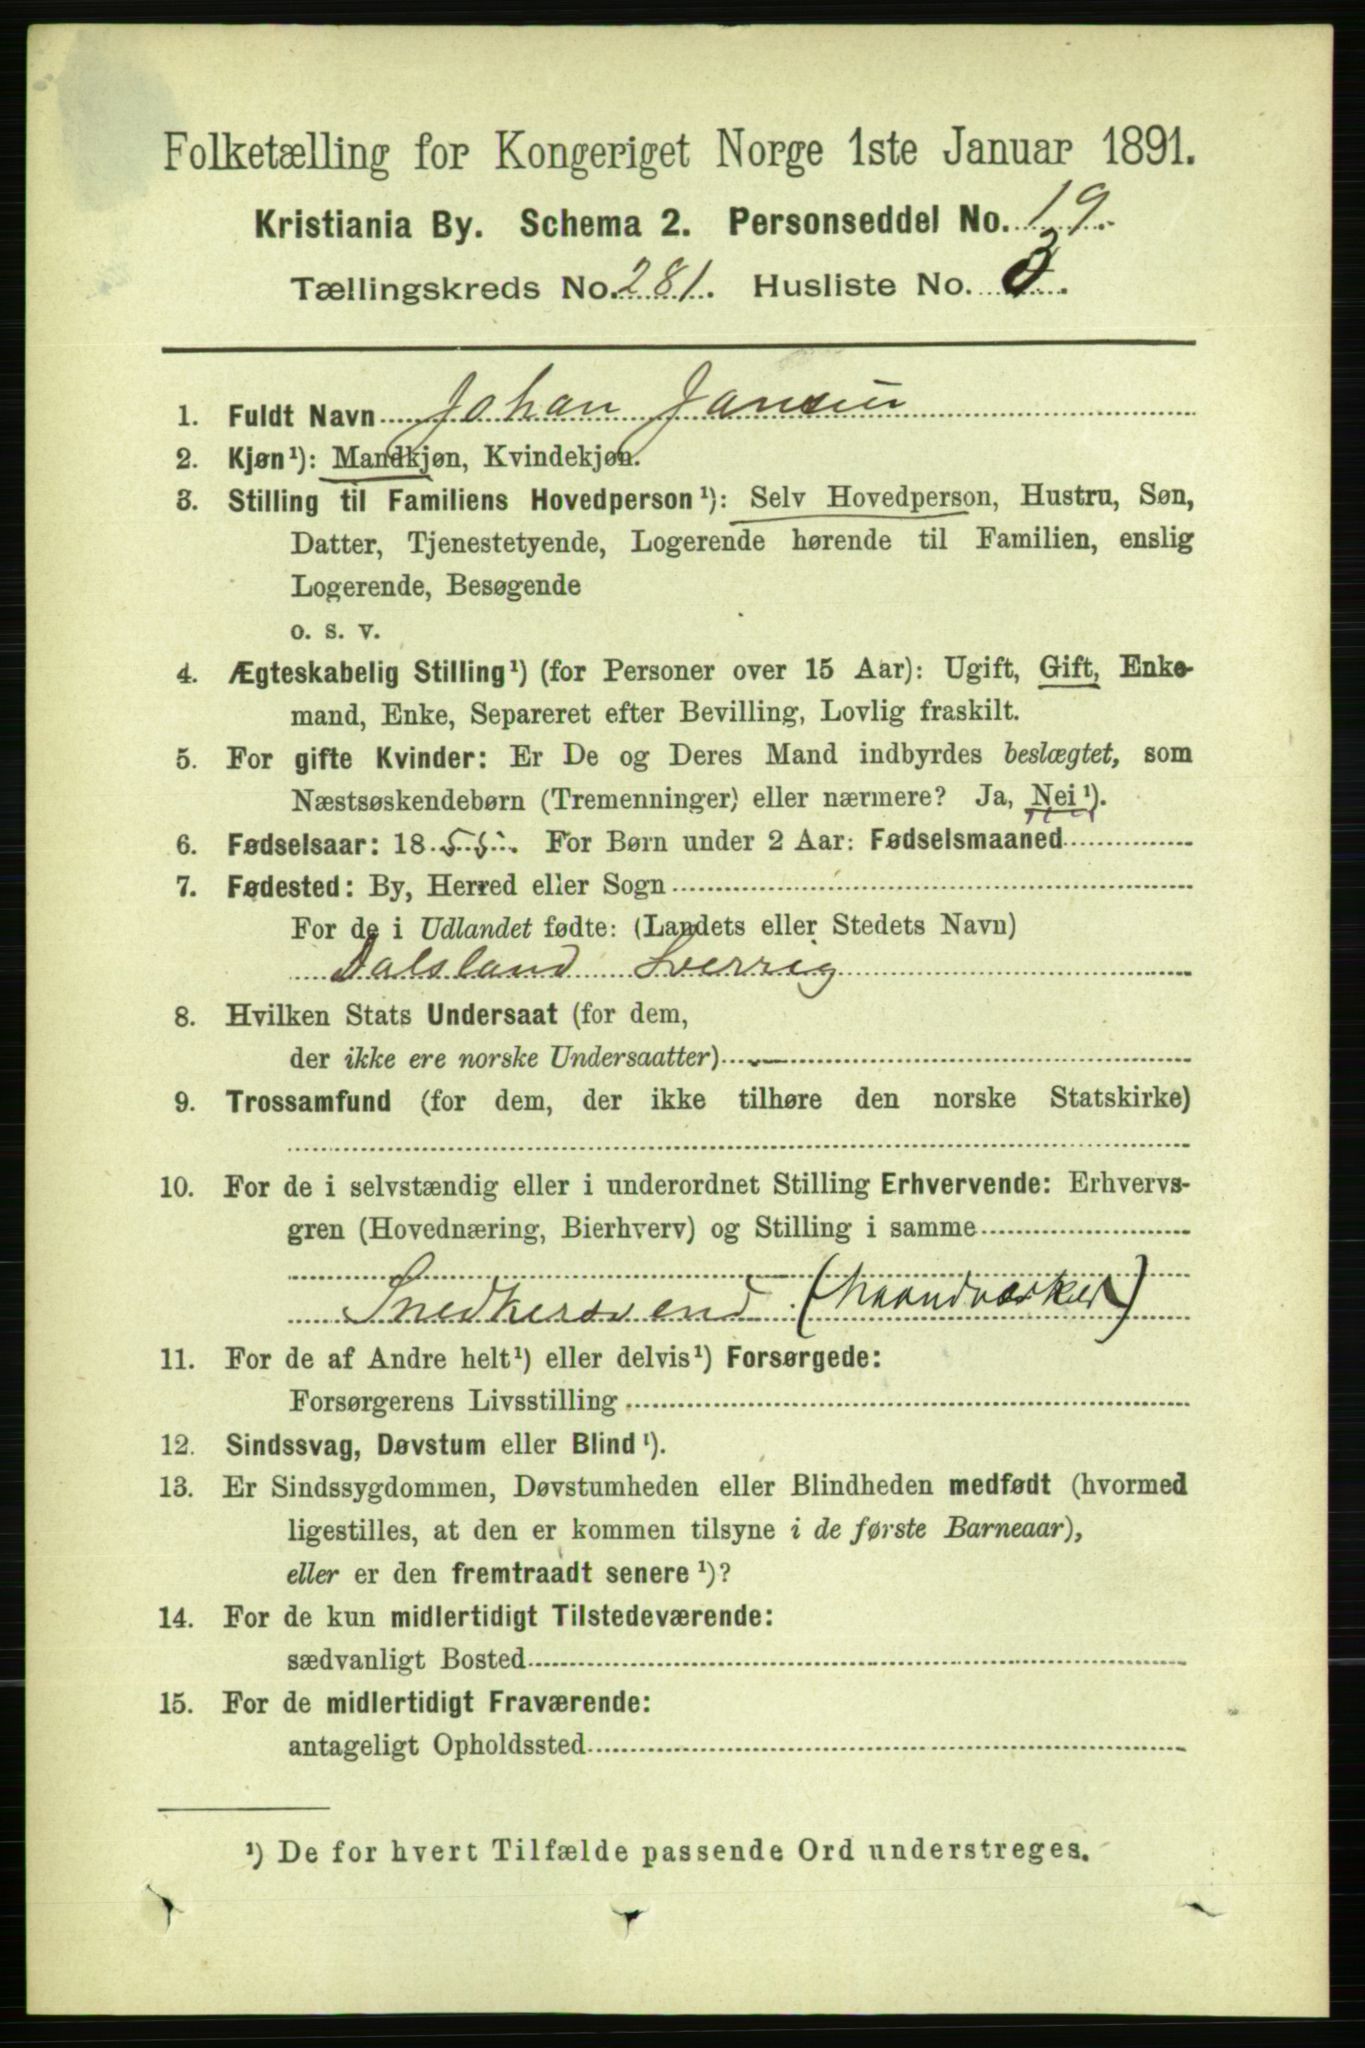 Folketælling for Kongeriget Norge 1ste Januar 1891.
Kristiania By. Schema 2. Personseddel No. 19.
Tællingskreds No. 281. Husliste No. 3.
1. Fuldt Navn Johan Jansen
2. Kjøn¹): Mandkjøn, Kvindekjøn.
3. Stilling til Familiens Hovedperson¹): Selv Hovedperson, Hustru, Søn,
Datter, Tjenestetyende, Logerende hørende til Familien, enslig
Logerende, Besøgende
o. s. v.
4. Ægteskabelig Stilling¹) (for Personer over 15 Aar): Ugift, Gift, Enke-
mand, Enke, Separeret efter Bevilling, Lovlig fraskilt.
5. For gifte Kvinder: Er De og Deres Mand indbyrdes beslægtet, som
Næstsøskendebørn (Tremenninger) eller nærmere? Ja, Nei¹).
6. Fødselsaar: 1855. For Børn under 2 Aar: Fødselsmaaned
7. Fødested: By, Herred eller Sogn
For de i Udlandet fødte: (Landets eller Stedets Navn)
Dalsland Sverrig
8. Hvilken Stats Undersaat (for dem,
der ikke ere norske Undersaatter)
9. Trossamfund (for dem, der ikke tilhøre den norske Statskirke)
10. For de i selvstændig eller i underordnet Stilling Erhvervende: Erhvervs-
gren (Hovednæring, Bierhverv) og Stilling i samme
Snedkersvend (haandværker)
11. For de af Andre helt¹) eller delvis¹) Forsørgede:
Forsørgerens Livsstilling
12. Sindssvag, Døvstum eller Blind¹).
13. Er Sindssygdommen, Døvstumheden eller Blindheden medfødt (hvormed
ligestilles, at den er kommen tilsyne i de første Barneaar),
eller er den fremtraadt senere¹)?
14. For de kun midlertidigt Tilstedeværende:
sædvanligt Bosted
15. For de midlertidigt Fraværende:
antageligt Opholdssted
¹) De for hvert Tilfælde passende Ord understreges.